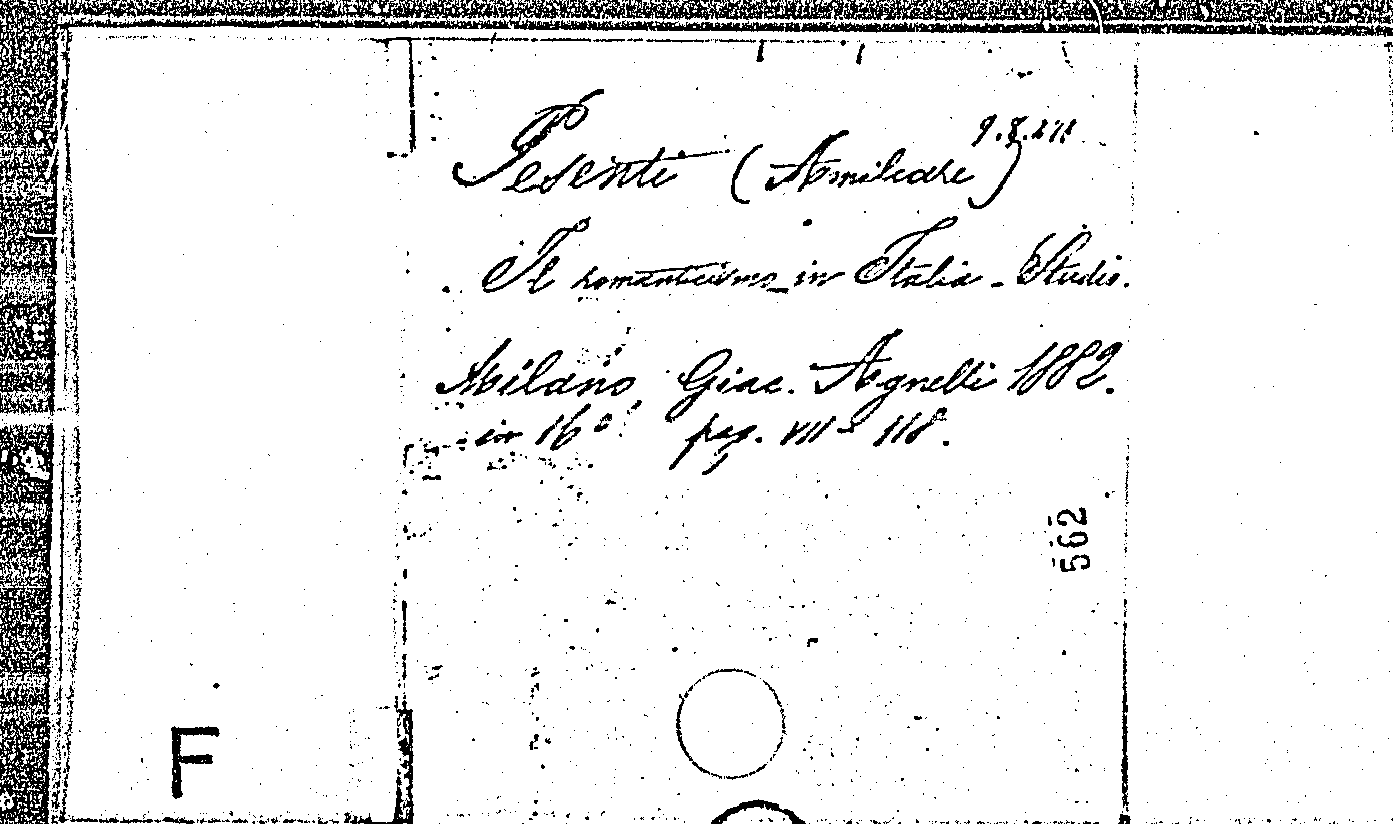 9.8.XII
Pesenti (Amilcare)
Il romanticismo in Italia - Studio.
Milano, Giac. Agnelli 1882.
in 16° pag. VII - 118.
562
F